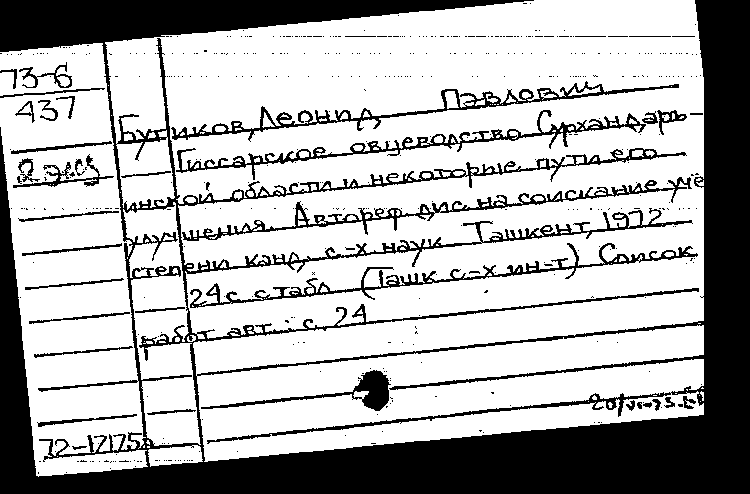 73-6
437
2 экз
Бугиков, Леонид Павлович
Гиссарское овцеводство Сурхандарь-
инской области и некоторые пути его
улучшения. Автореф. дис. на соискание учё
степени канд. с.-х наук Ташкент, 1972
24с. с табл (Ташк с.-х ин-т) Список
работ авт.: с. 24
72-12175а